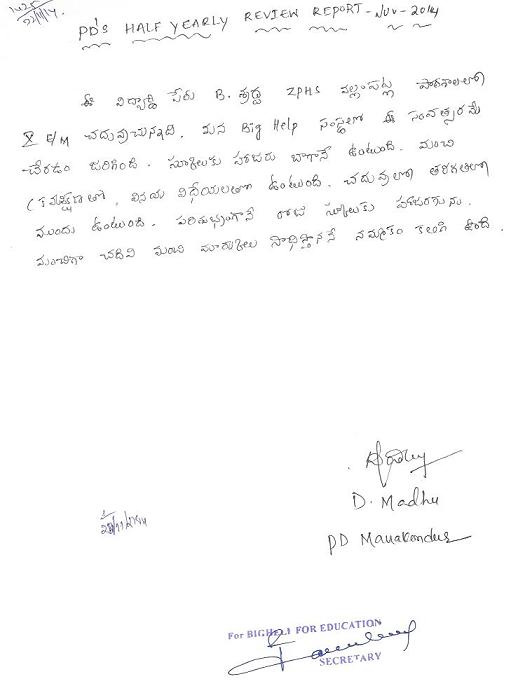 PD'S HALF YEARLY REVIEW REPORT - NOV - 2014
ఈ విద్యార్థి పేరు B. శ్రావ్య ZPHS వల్లంపట్ల పాఠశాలలో
X E/M చదువుచున్నది. మన Big Help సంస్థలో ఈ సంవత్సరమే
చేరడం జరిగింది. స్కూలుకు హాజరు బాగానే ఉంటుంది. మంచి
క్రమశిక్షణతో, వినయ విధేయలతో ఉంటుంది. చదువులో తరగతిలో
ముందు ఉంటుంది. పరిశుభ్రంగానే రోజు స్కూలుకు
మంచిగా చదివి మంచి మార్కులు సాధిస్తాననే నమ్మకం కలిగి ఉంది.
D. Madhu
PD Manakondur
For BIGHELP FOR EDUCATION
SECRETARY